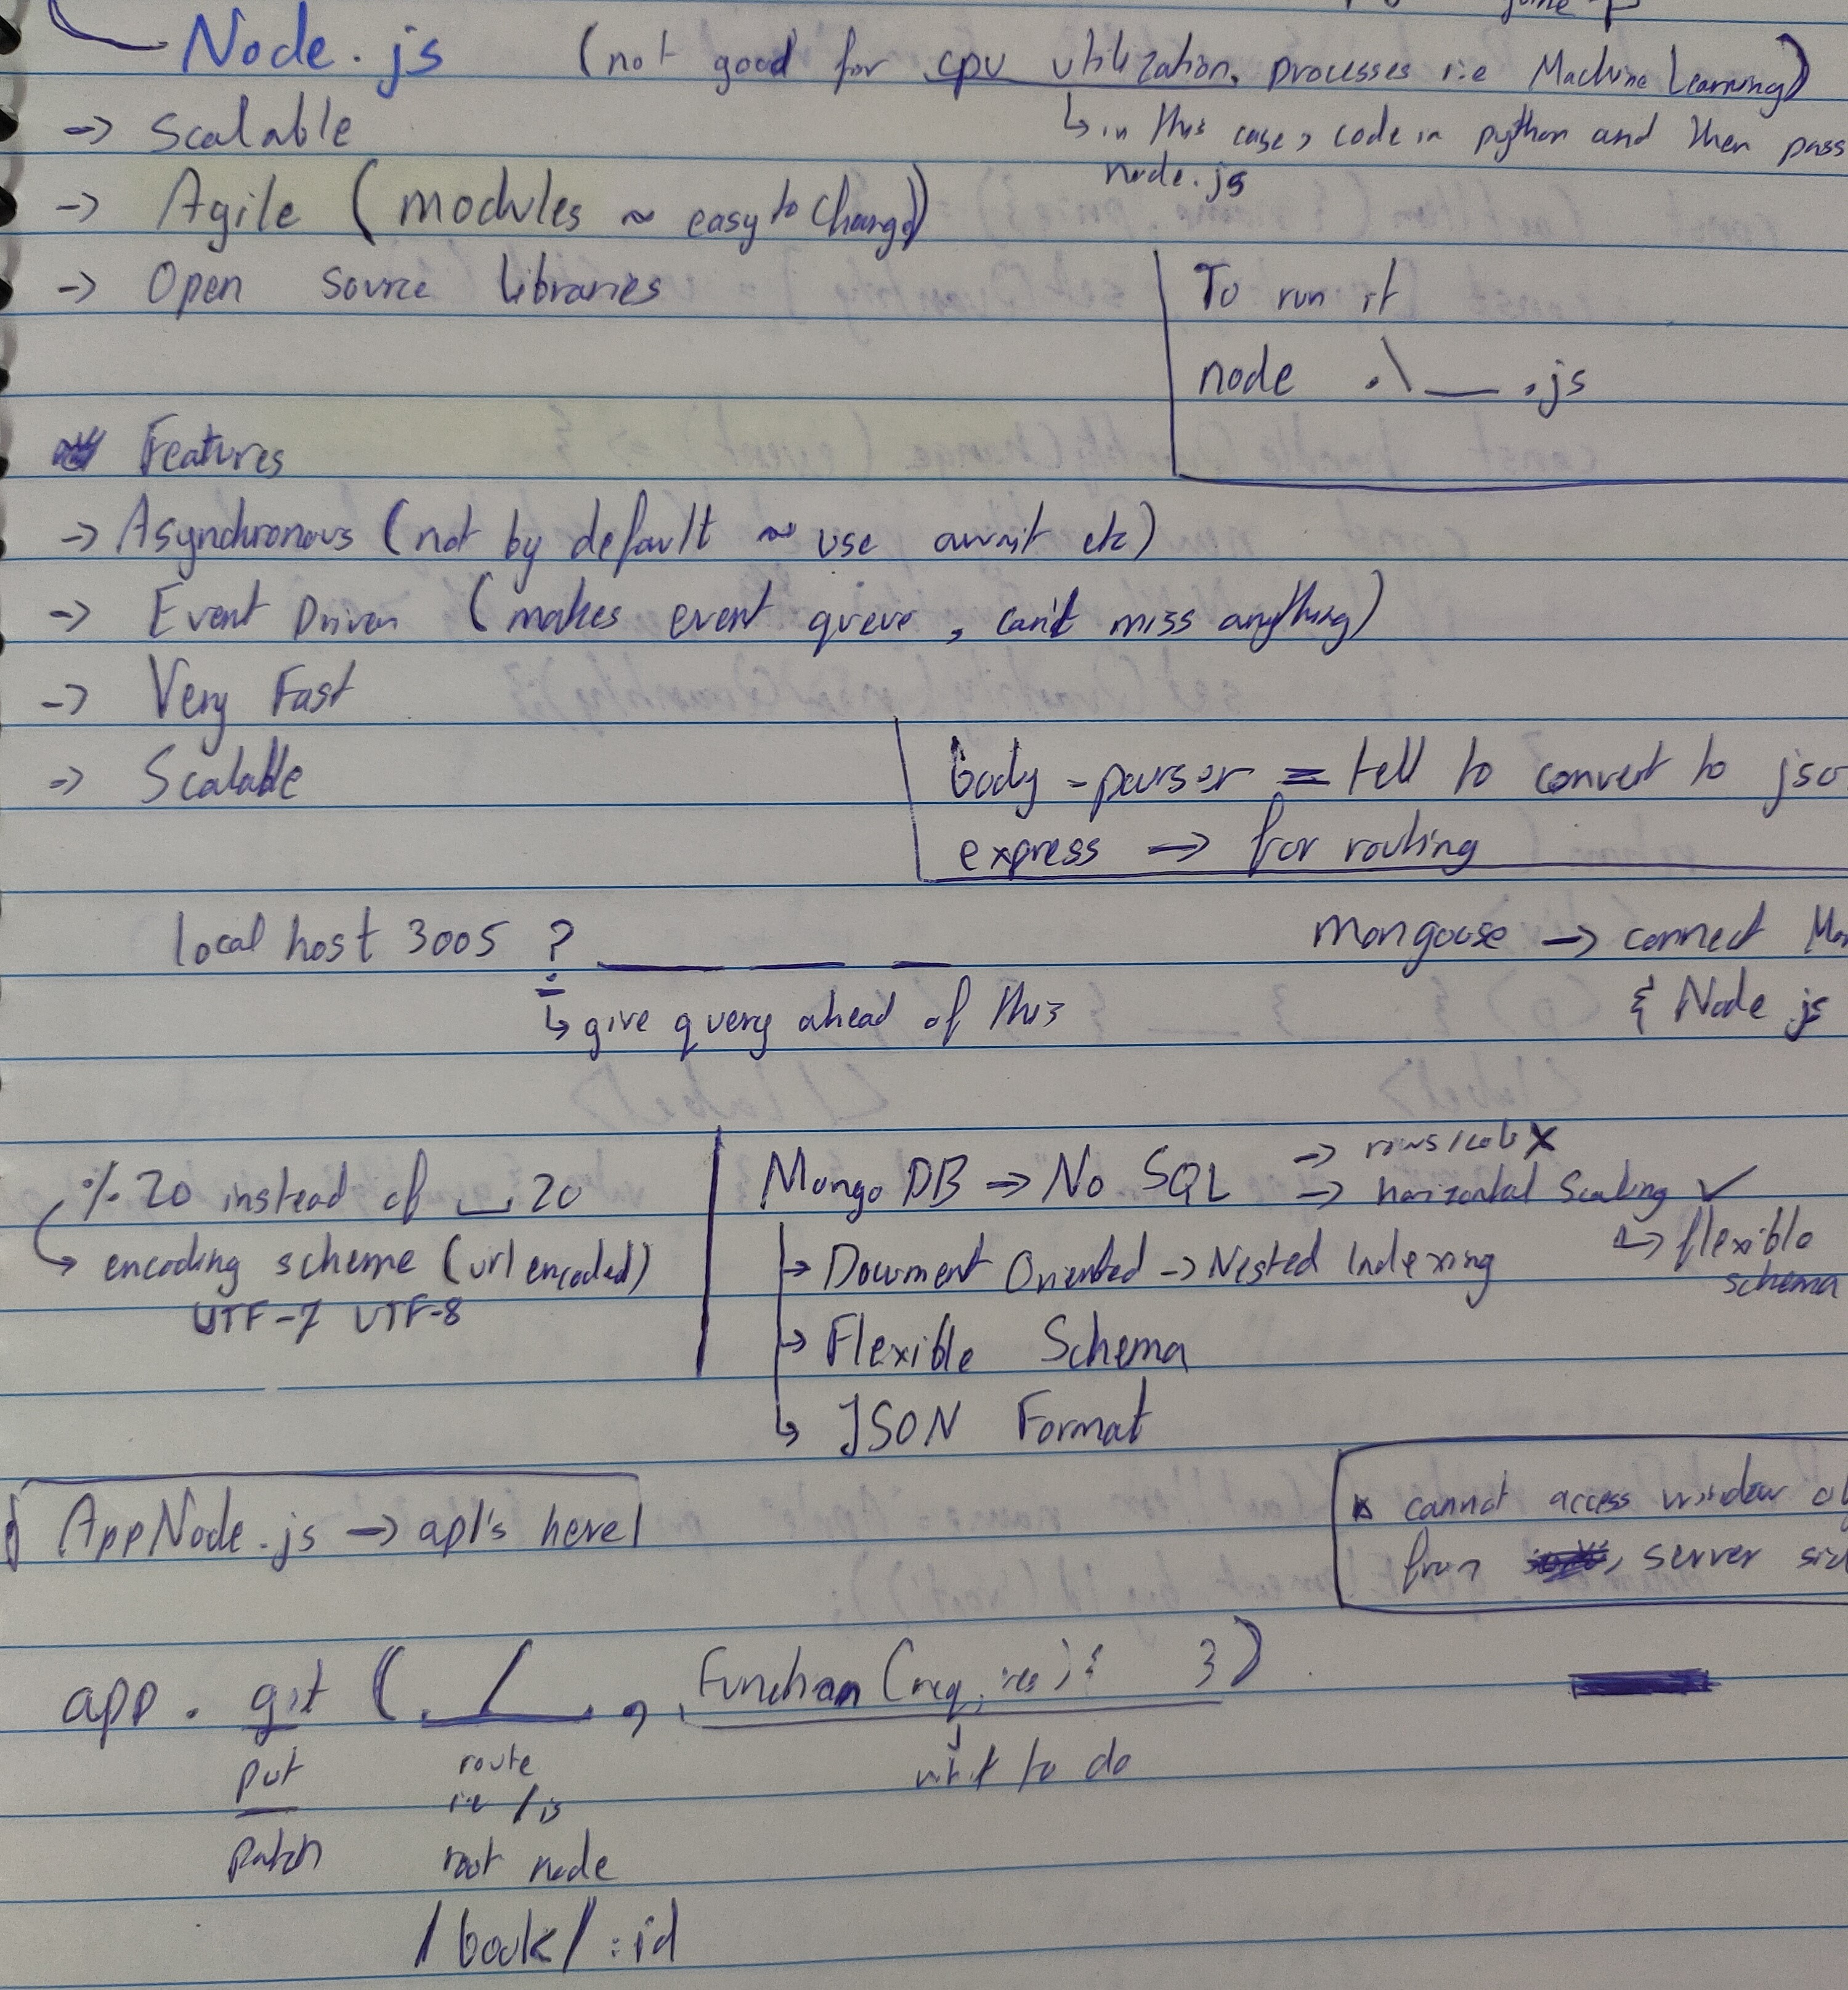 Node.js (not good for cpu utilization, processes i.e Machine Learning)
→ Scalable
↳ in this case, code in python and then pass
node.js
→ Agile (modules ~ easy to change)
→ Open source libraries
To run it
node .\__.js
Features
→ Asynchronous (not by default ~ use await etc)
→ Event Driven (makes event queue, can't miss anything)
→ Very Fast
→ Scalable
body-parser = tell to convert to jso
express → for routing
local host 3005 ? __ __ __
↳ give query ahead of this
mongoose → connect Mon
& Node.js
%20 instead of ⎵ 20
↳ encoding scheme (url encoded)
UTF-7 UTF-8
Mongo DB → No SQL → rows/cols X
→ horizontal Scaling ✓
↳ flexible
schema
→ Document Oriented → Nested Indexing
→ Flexible Schema
↳ JSON Format
AppNode.js → apI's here
cannot access window ob
from server sid
app.get ( __/__ , Function (req, res) { })
put
patch
route
i.e / is
root node
/book/:id
to do